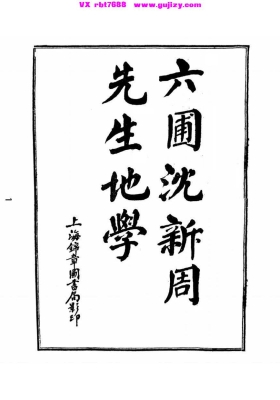 VX rbt7688 www.gujizy.com
六圃沈新周
先生地學
上海錦章圖書局影印
1